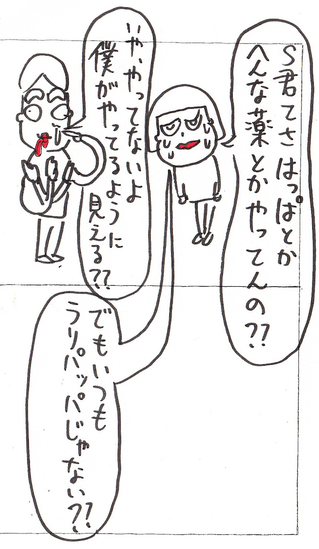 S君てさはっぱとか
へんな薬とかやってんの??
いや、やってないよ
僕がやってるように
見える??
でもいつも
ラリパッパじゃない??